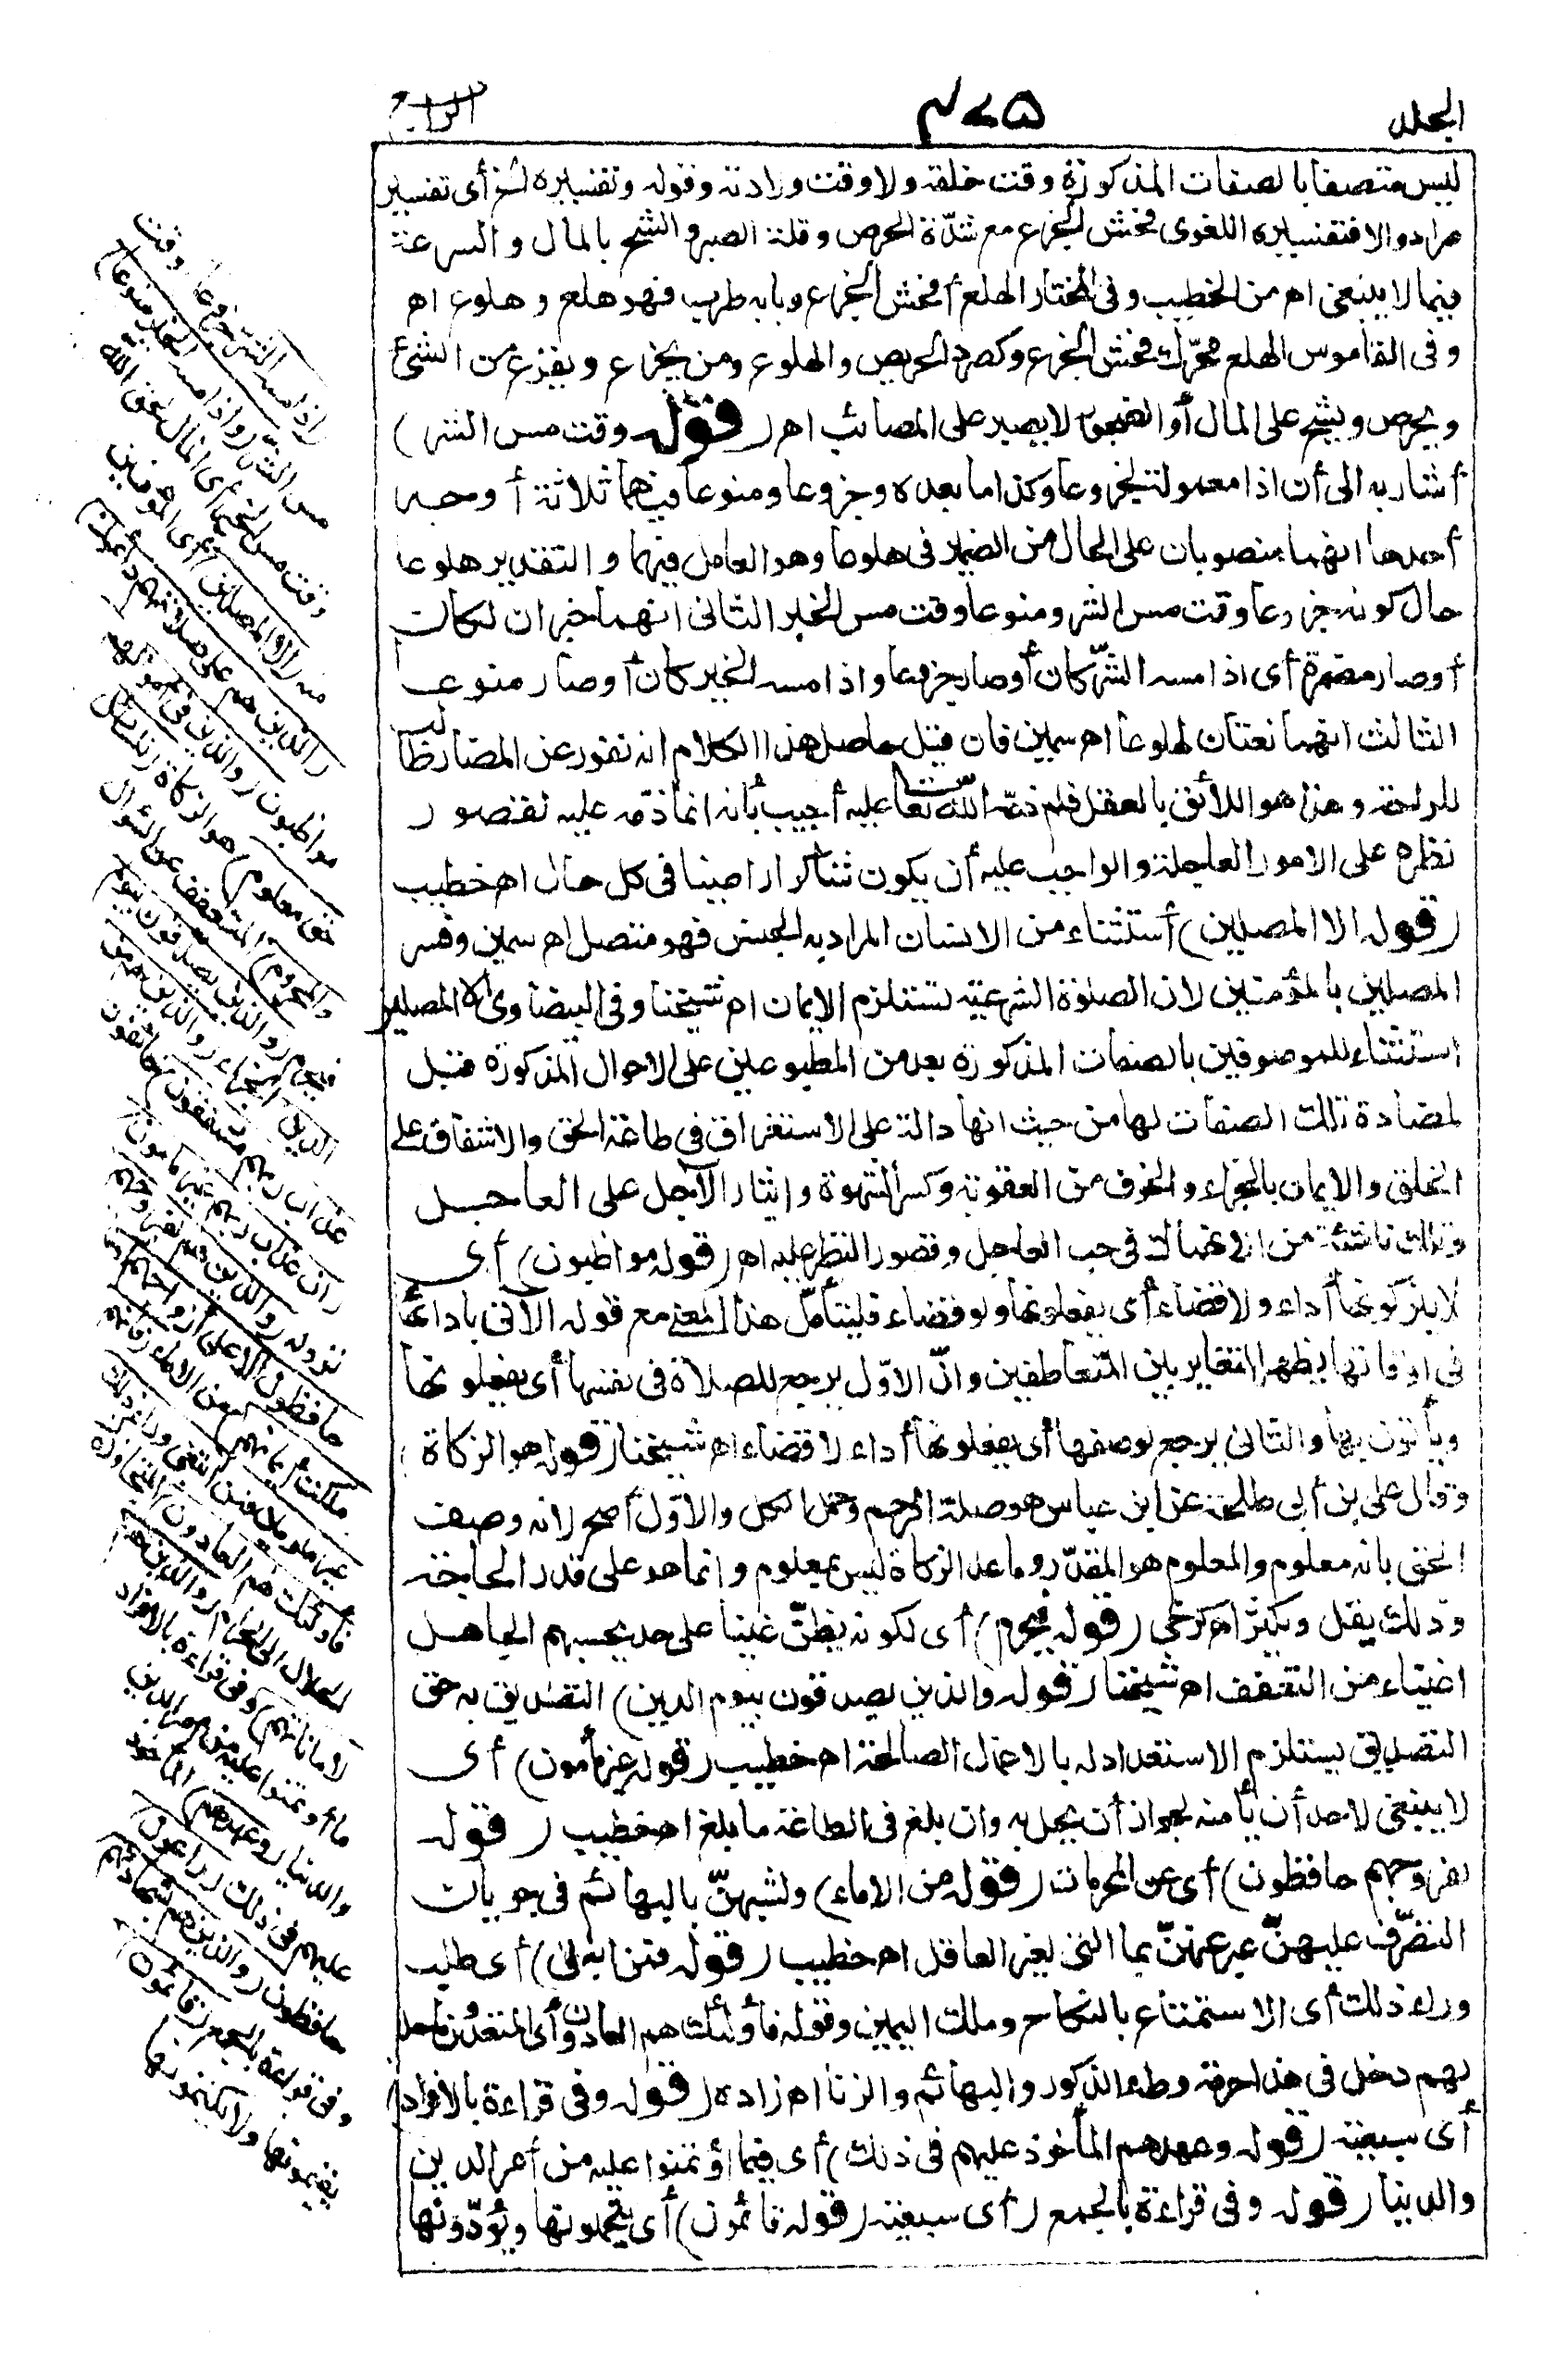 الجلد
٤٧٥
الرابع
ليس متصفا بالصفات المذكورة وقت خلقه ولا وقت ولادته وقوله وتفسيره لشر أى تفسير
مراد والا فتفسيره اللغوى فحش الجزع مع شدّة الحرص وقلة الصبر والشح بالمال والسرعة
فيما لا ينبغى اه من الخطيب وفى المختار الهلع أفحش الجزع وبابه طرب فهو هلع وهلوع اه
وفى القاموس الهلع محرّك أفحش الجزع وكصرد الحريص والهلوع من يجزع ويفزع من الشئ
ويحرص ويشح على المال أو الضجور لا يصبر على المصائب اه (قوله وقت مس الشر)
أشار به الى أن اذا معمولة لجزوعا وكذا ما بعده وجزوعا ومنوعا فيهما ثلاثة أوجه
أحدها انهما منصوبان على الحال من الضمير فى هلوعا وهو العامل فيهما والتقدير هلوعا
حال كونه جزوعا وقت مس الشر ومنوعا وقت مس الخير الثانى انهما خبران لكان
أو صار مضمرة أى اذا مسه الشرّ كان أو صار جزوعا واذا مسه الخير كان أو صار منوعا
الثالث انهما نعتان لهلوعا اه سمين فان قيل حاصل هذا الكلام انه نفور عن المضار طالب
للراحة وهذا هو اللائق بالعقل فلم ذمّه الله تعالى عليه أجيب بأنه انما ذمّه عليه لقصور
نظره على الامور العاجلة والواجب عليه أن يكون شاكرا راضيا فى كل حال اه خطيب
(قوله الا المصلين) أستثناء من الانسان المراد به الجنس فهو متصل اه سمين وفسر
المصلين بالمؤمنين لان الصلوة الشرعية تستلزم الايمان اه شيخنا وفى البيضاوى الا المصلين
استثناء للموصوفين بالصفات المذكورة بعد من المطبوعين على الاحوال المذكورة قبل
لمضادة تلك الصفات لها من حيث انها دالة على الاستغراق فى طاعة الحق والاشفاق على
الخلق والايمان بالجزاء والخوف من العقوبة وكسر الشهوة وايثار الآجل على العاجل
وتلك ناشئة من الانهماك فى حب العاجل وقصور النظر عليه اه (قوله مواظبون) أى
لا يتركونها أداء ولا قضاء أى يفعلونها ولو قضاء فليتأمّل هذا المعنى مع قوله الآتى بادائها
فى اوقاتها ليظهر التغاير بين المتعاطفين وانّ الاوّل يرجع للصلاة فى نفسها أى يفعلونها
ويأتون بها والثانى يرجع لوصفها أى يفعلونها أداء لا قضاء اه شيخنا (قوله هو الزكاة)
وقال على بن أبى طلحة عن ابن عباس هو صلة الرحم وحمل الكل والاوّل أصح لانه وصف
الحق بانه معلوم والمعلوم هو المقدّر وما عدا الزكاة ليس بمعلوم وانما هو على قدر الحاجة
وذلك يقل ويكثر اه كرخى (قوله فيحرم) أى لكونه يظنّ غنيا على حد يحسبهم الجاهل
اغنياء من التعفف اه شيخنا (قوله والذين يصدقون بيوم الدين) التصديق به حق
التصديق يستلزم الاستعداد له بالاعمال الصالحة اه خطيب (قوله غير مأمون) أى
لا ينبغى لاحد أن يأمنه لجواز أن يحل به وان بلغ فى الطاعة ما بلغ اه خطيب (قوله
لفروجهم حافظون) أى عن المحرمات (قوله من الاماء) ولشبهنّ بالبهائم فى جريان
التصرّف عليهنّ عبر عنهنّ بما التى لغير العاقل اه خطيب (قوله فمن ابتغى) أى طلب
وراء ذلك أى الاستمتاع بالنكاح وملك اليمين وقوله فأولئك هم العادون أى المتعدّون
بهم دخل فى هذا حرمة وطء الذكور والبهائم والزنا اه زاده (قوله وفى قراءة بالافراد)
أى سبعية (قوله وعهدهم المأخوذ عليهم فى ذلك) أى فيما اؤتمنوا عليه من أمر الدين
والدنيا (قوله وفى قراءة بالجمع) أى سبعية (قوله قائمون) أى يتحملونها ويؤدّونها
(اذا مسه الشر جزوعا) وقت
مس الشر (واذا مسه الخير منوعا)
وقت مس الخير أى المال لحق الله
منه (الا المصلين) أى المؤمنين
(الذين هم على صلاتهم دائمون)
مواظبون (والذين فى أموالهم
حق معلوم) هو الزكاة (للسائل
والمحروم) المتعفف عن السؤال
فيحرم (والذين يصدقون بيوم
الدين) الجزاء (والذين هم من
عذاب ربهم مشفقون) خائفون
(ان عذاب ربهم غير مأمون)
نزوله (والذين هم لفروجهم
حافظون الا على أزواجهم أو
ما ملكت أيمانهم) من الاماء (فانهم
غير ملومين فمن ابتغى وراء ذلك
فأولئك هم العادون) المتجاوزون
الحلال الى الحرام (والذين هم
لاماناتهم) وفى قراءة بالافراد
ما أوتمنوا عليه من أمر الدين
والدنيا (وعهدهم) المأخوذ
عليهم فى ذلك (راعون)
حافظون (والذين هم بشهادتهم)
وفى قراءة بالجمع (قائمون)
يقيمونها ولا يكتمونها